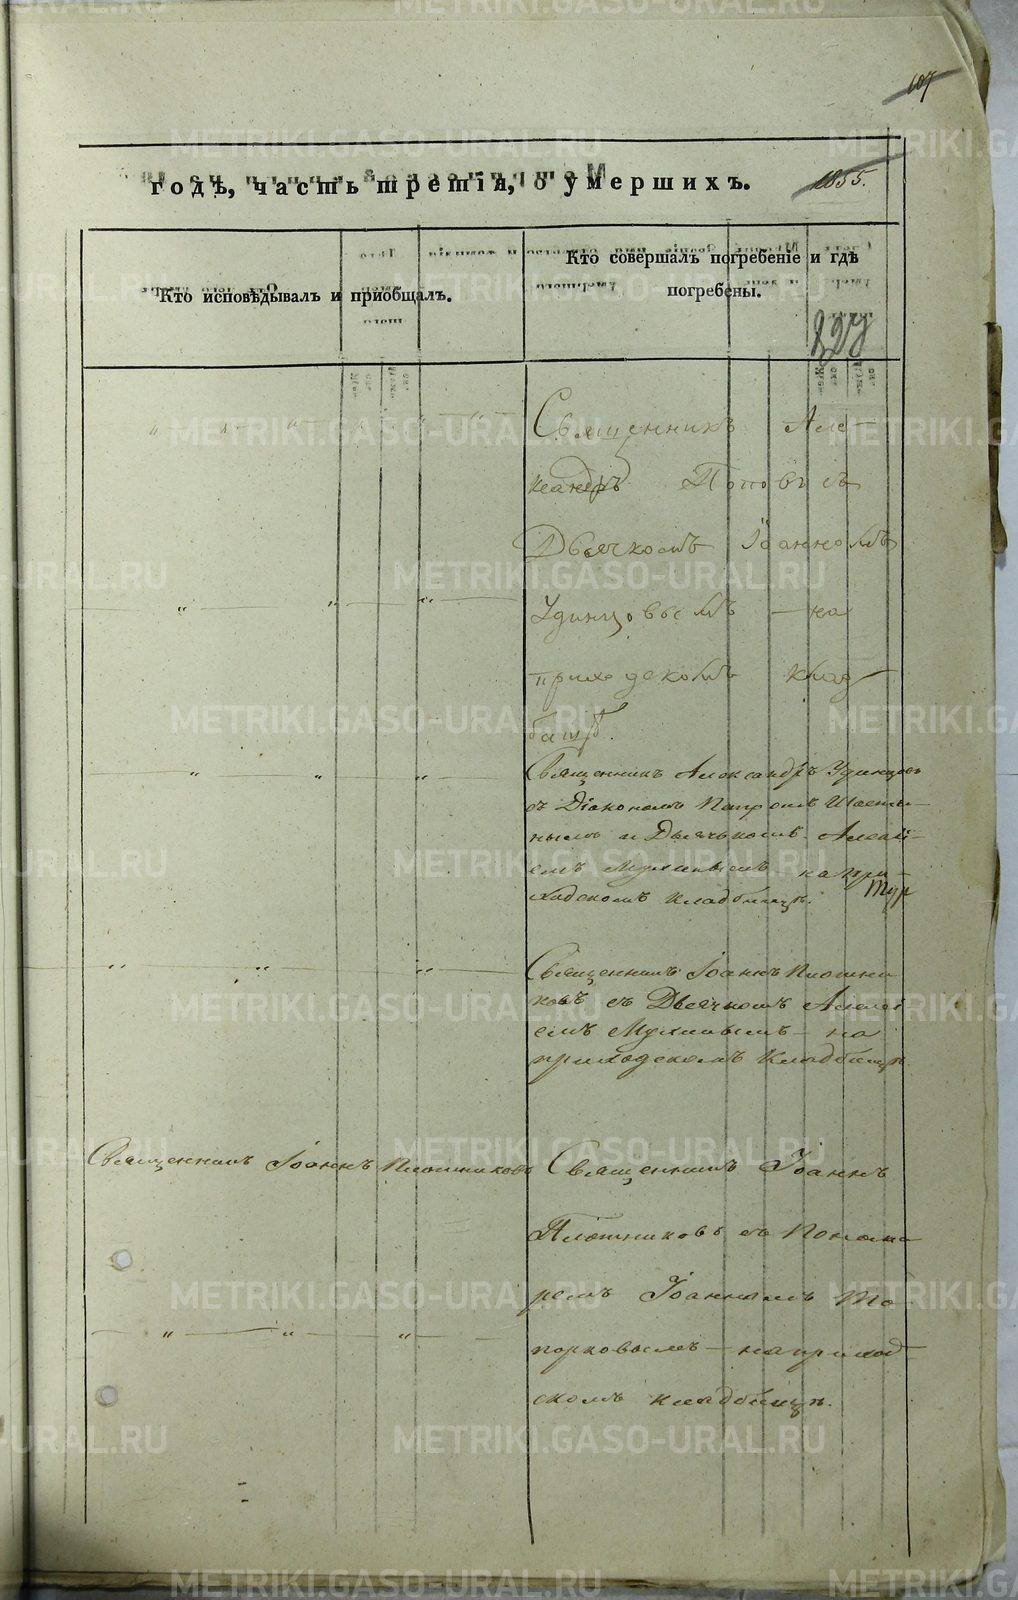 107
годѣ, часть третія, о умершихъ.
1855.
Кто исповѣдывалъ и приобщалъ.
Кто совершалъ погребеніе и гдѣ
погребены.
227
Священникъ Але-
ксандръ Поповъ съ
Дьячкомъ Іоанномъ
Удинцовымъ – на
приходскомъ клад
бищѣ.
Священникъ Александръ Удинцовъ
съ Діакономъ
и Дьячькомъ Алексѣ-
емъ Мухинымъ на при-
ходскомъ кладбищѣ.
Священникъ Іоаннъ Плотни
ковъ съ Дьячкомъ Алексѣ
емъ Мухинымъ – на
приходскомъ кладбищѣ
Священникъ Іоаннъ Плотниковъ
Священникъ Іоаннъ
Плотниковъ съ Понома
ремъ Іоанномъ То-
порковымъ – на приход
скомъ кладбищѣ.
METRIKI.GASO-URAL.RU